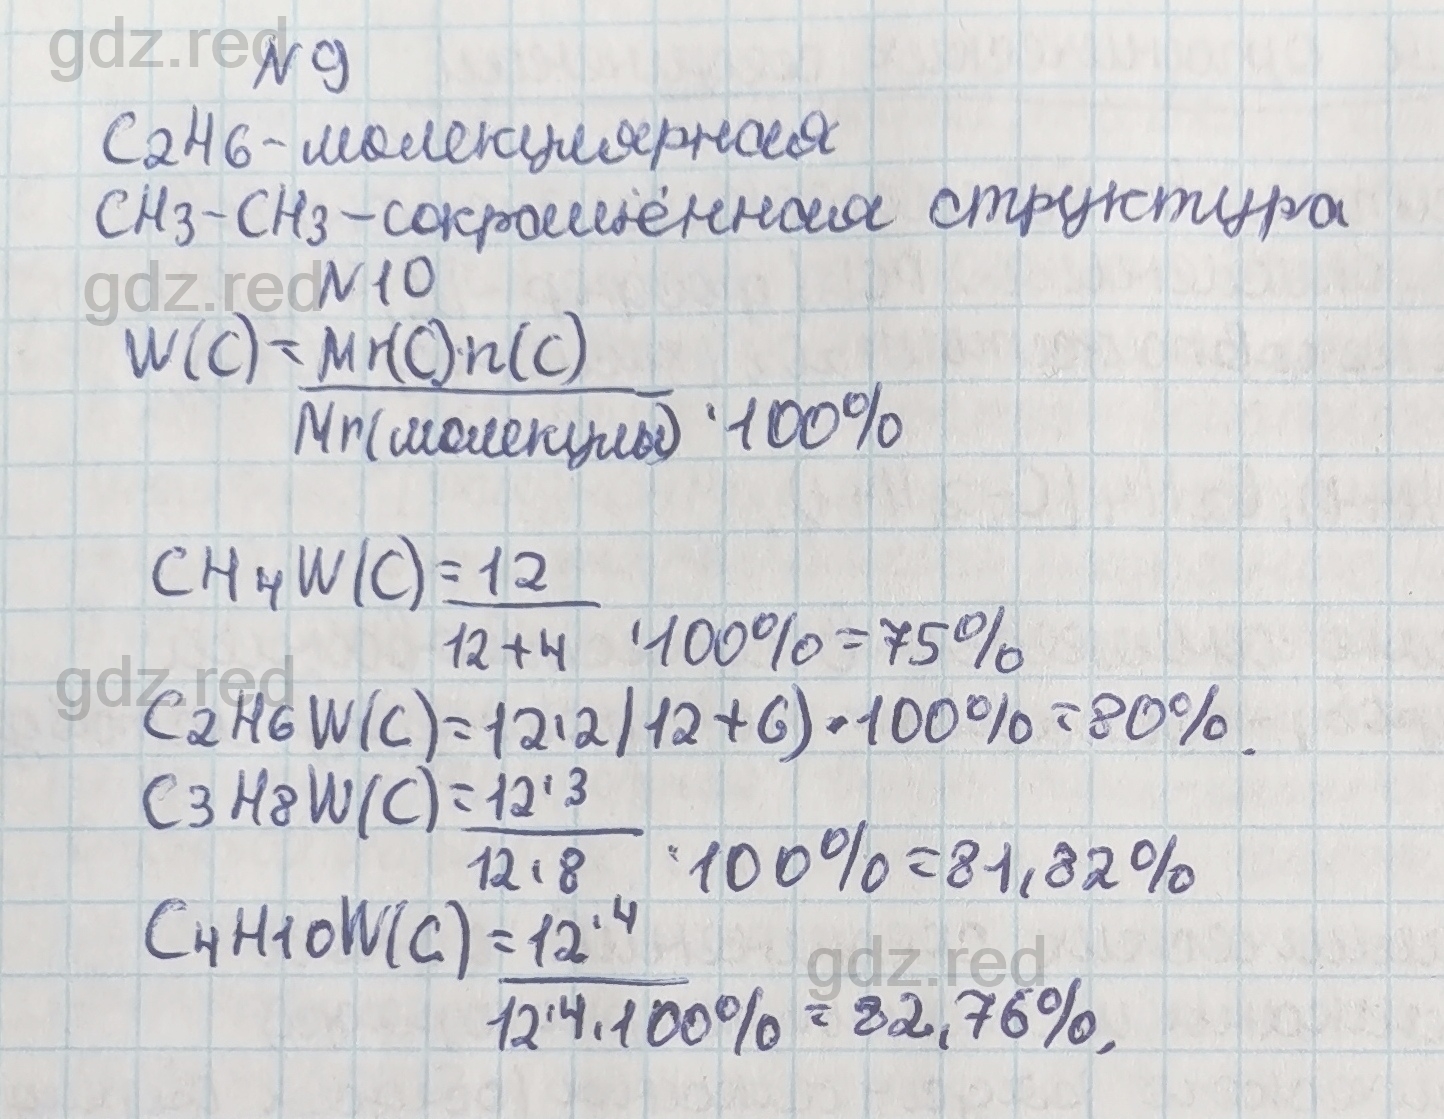 gdz.red
N9
C2H6-молекулярная
CH3-CH3-сокращённая структура
gdz.red
N10
W(C)=Mr(C)·n(C)
Mr(молекулы) ·100%
CH4W(C)=12
12+4 ·100%=75%
gdz.red
C2H6W(C)=12·2/12+6)·100%=80%.
C3H8W(C)=12·3
12·8 ·100%=81,82%
C4H10W(C)=12·4
gdz.red
12·4·100%=82,76%.